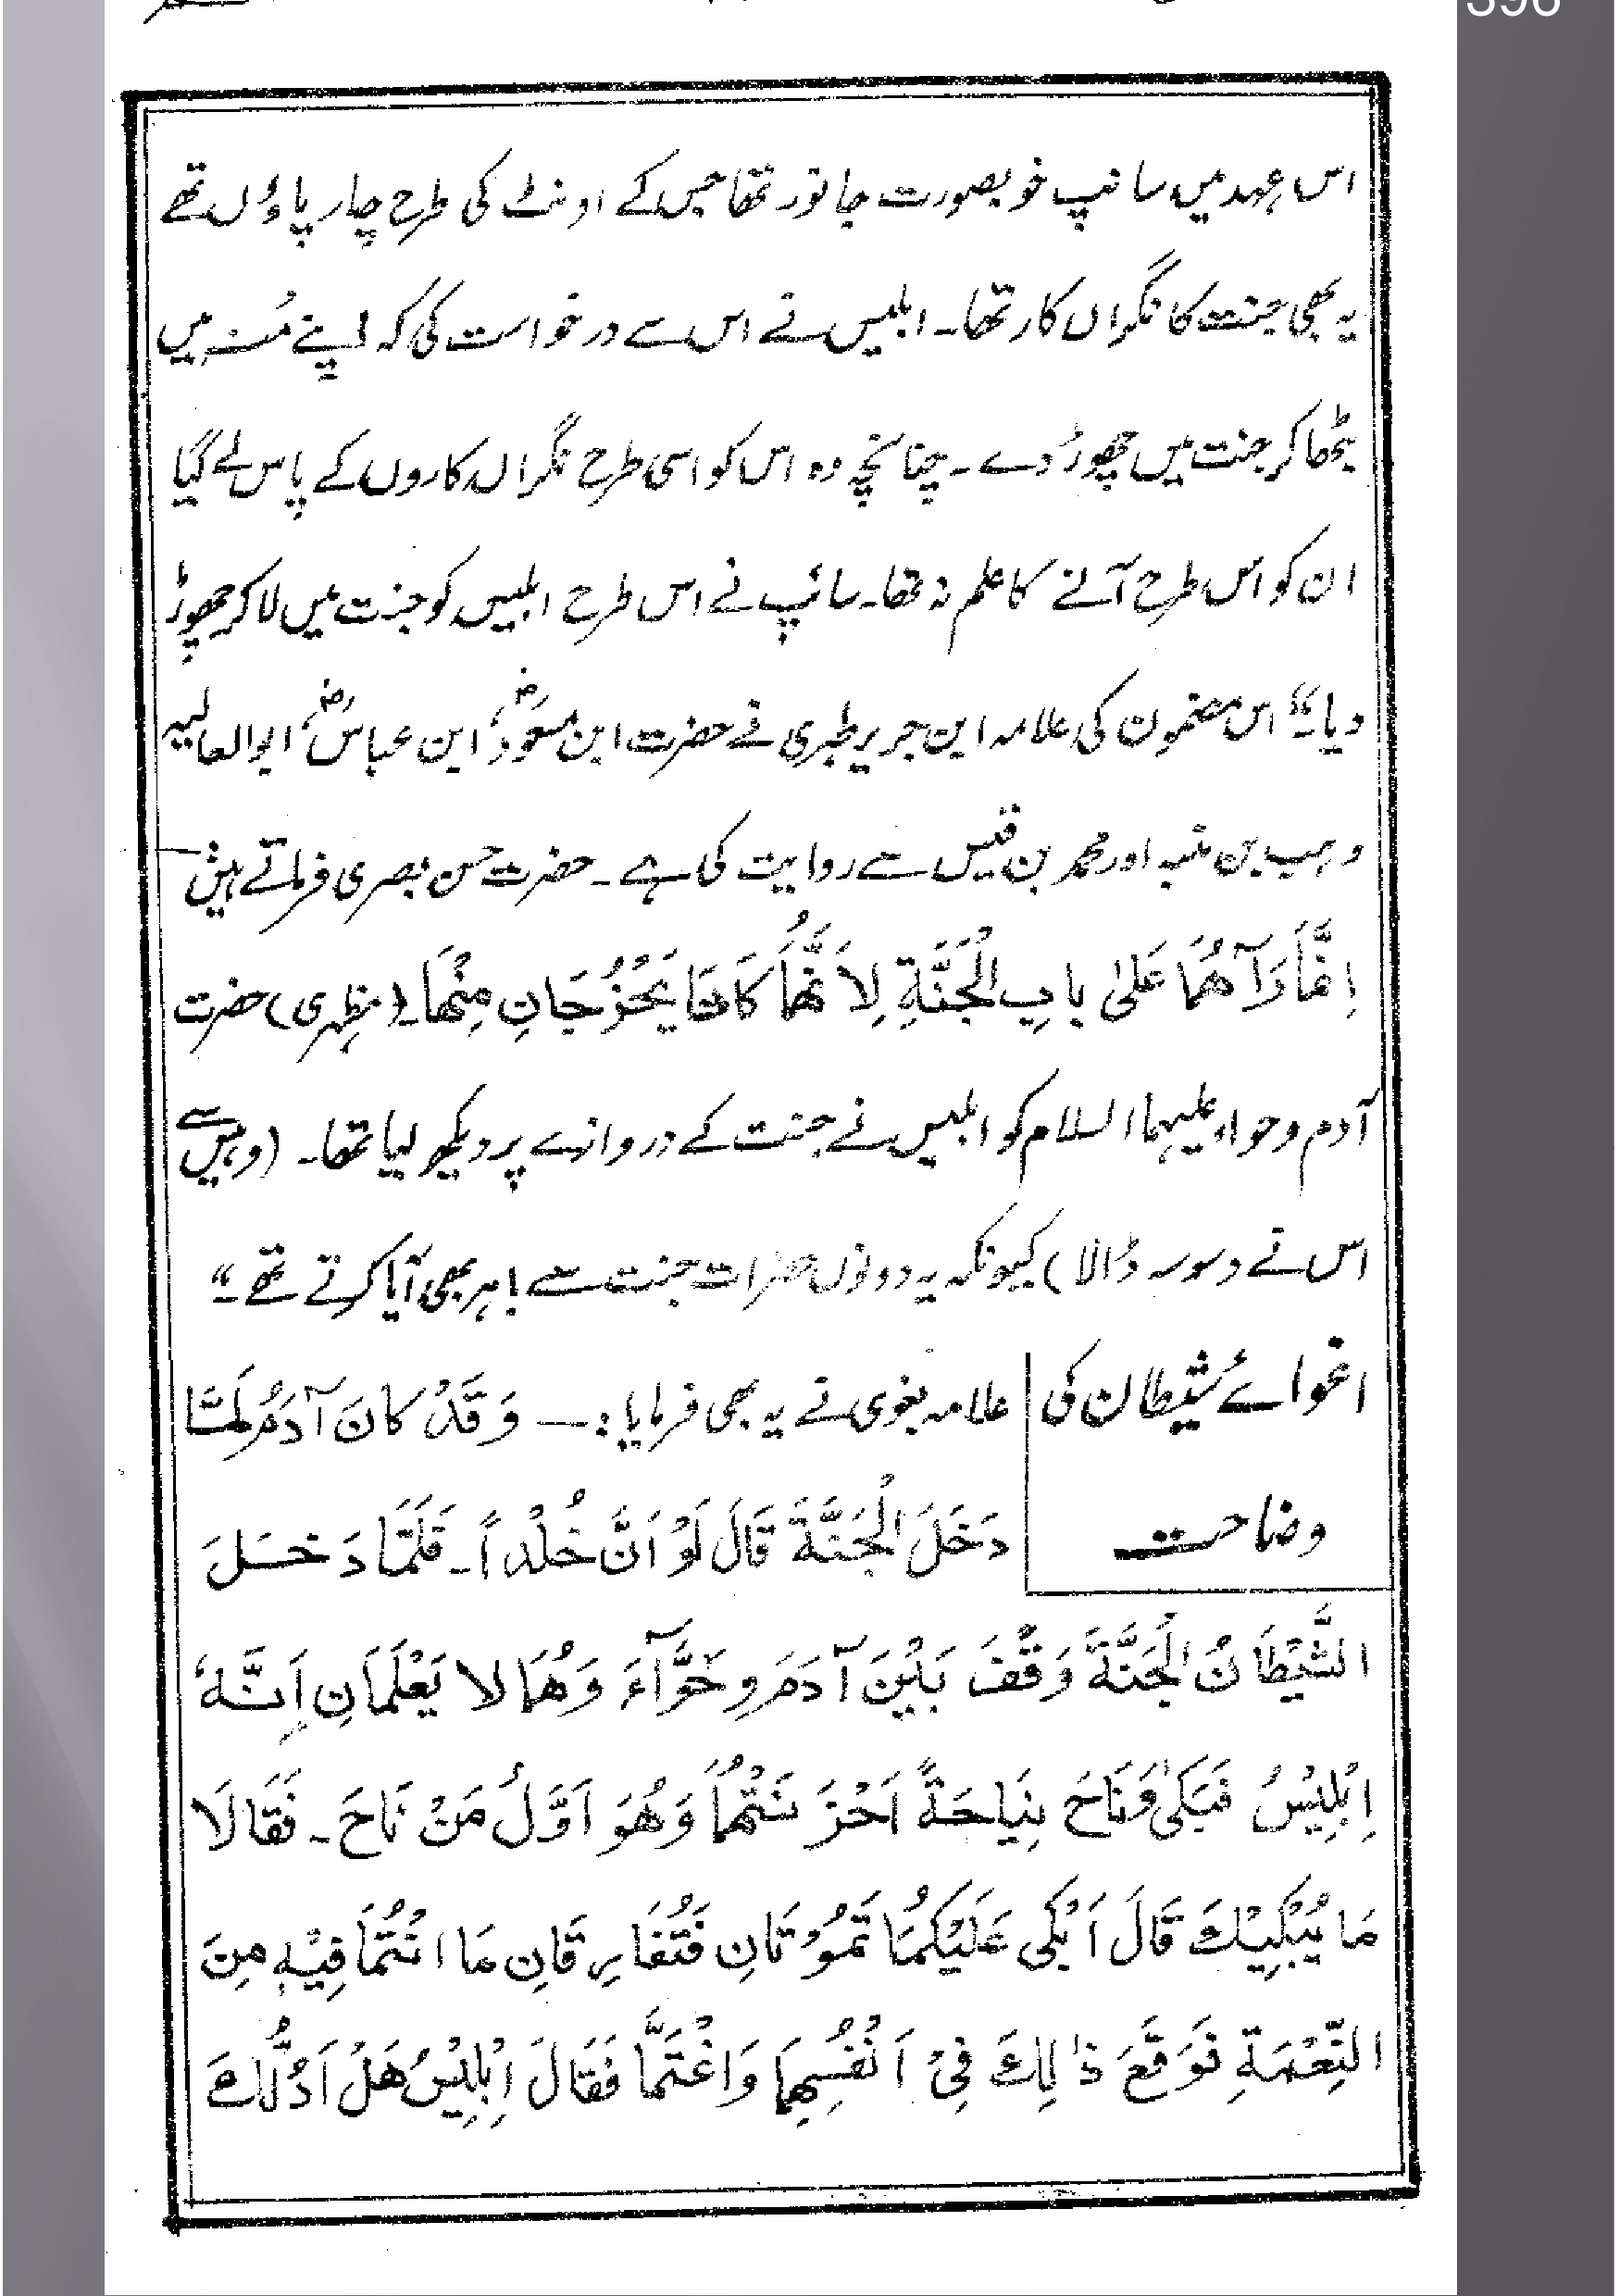 396
اس عہد میں سانپ خوبصورت جانور تھا جس کے اونٹ کی طرح چار پاؤں تھے
یہ بھی جنت کا نگراں کار تھا۔ ابلیس نے اس سے درخواست کی کہ اپنے مُنہ میں
بٹھا کر جنت میں چھوڑ دے۔ چنانچہ وہ اس کو اسی طرح نگراں کاروں کے پاس لے گیا
ان کو اس طرح آنے کا علم نہ تھا۔ سانپ نے اس طرح ابلیس کو جنت میں لا کر چھوڑ
دیا۔“ اس مضمون کی علامہ ابن جریر طبری نے حضرت ابن مسعودؓ، ابن عباسؓ، ابو العالیہ
وہب بن منبہ اور محمد بن قیس سے روایت کی ہے۔ حضرت حسن بصری فرماتے ہیں
اِنَّمَا رَاٰهُمَا عَلیٰ بابِ الْجَنَّةِ لِاَنَّهُمَا كَانَا يَخْرُجَانِ مِنْهَا۔ (مظہری) حضرت
آدم و حواء علیہما السلام کو ابلیس نے جنت کے دروازے پر دیکھ لیا تھا۔ (وہیں سے
اس نے وسوسہ ڈالا) کیونکہ یہ دونوں حضرات جنت سے باہر بھی آیا کرتے تھے۔“
اغوائے شیطان کی
وضاحت
علامہ بغوی نے یہ بھی فرمایا: — وَقَدْ كَانَ آدَمُ لَمَّا
دَخَلَ الْجَنَّةَ قَالَ لَوْ اَنَّ خُلْداً۔ فَلَمَّا دَخَلَ
الشَّيْطَانُ الْجَنَّةَ وَقَفَ بَيْنَ آدَمَ وِحَوَّآءَ وَهُمَا لا يَعْلَمَانِ اَنَّهٗ
اِبْلِيْسُ فَبَكىٰ وَنَاحَ بِنِيَاحَةً اَحْزَنَتْهُمَا وَهُوَ اَوَّلُ مَنْ نَاحَ۔ فَقَالَا
مَا يُبْكِيْكَ قَالَ اَبْكِی عَلَيْكُمَا تَمُوْتَانِ فَتُفَارِقَانِ مَا اَنْتُمَا فِيْهِ مِنَ
النِّعْمَةِ فَوَقَعَ ذٰلِكَ فِیْ اَنْفُسِهِمَا وَاغْتَمَّا فَقَالَ اِبْلِيْسُ هَلْ اَدُلُّكَ